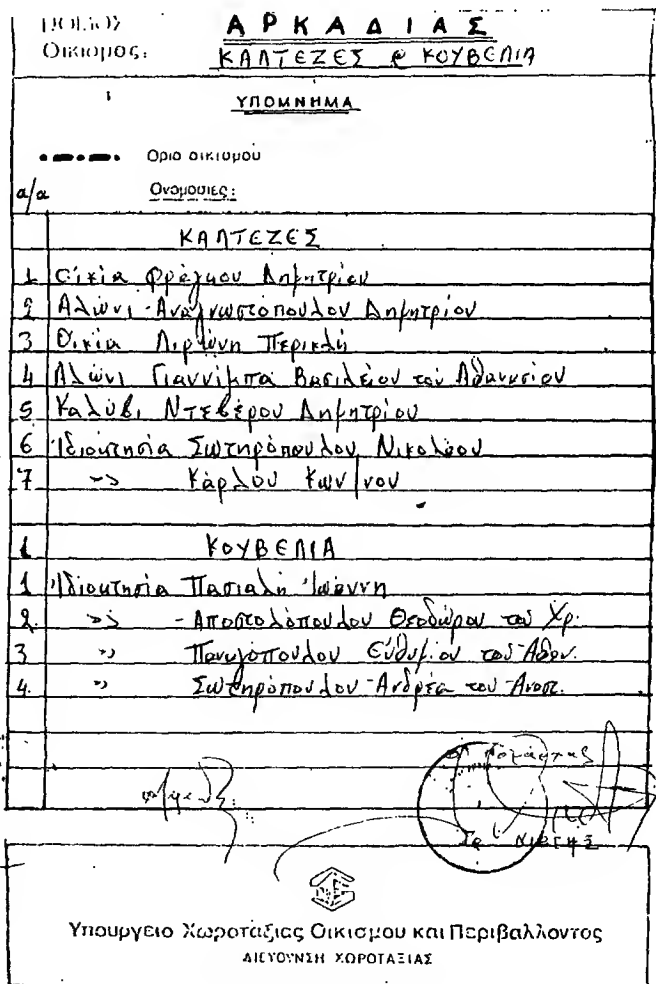 ΝΟΜΟΣ ΑΡΚΑΔΙΑΣ
Οικισμος: ΚΑΛΤΕΖΕΣ & ΚΟΥΒΕΛΙΑ
ΥΠΟΜΝΗΜΑ
Οριο οικισμου
α/α Ονομασιες:
ΚΑΛΤΕΖΕΣ
1 Οικία Φράγκου Δημητρίου
2 Αλώνι - Αναγνωστόπουλου Δημητρίου
3 Οικία Περικλή
4 Αλώνι Γιαννίμπα Βασιλείου του Αθανασίου
5 Καλύβι Ντεβέρου Δημητρίου
6 Ιδιοκτησία Σωτηρόπουλου Νικολάου
7 -»- Κάρλου Κων/νου
1 ΚΟΥΒΕΛΙΑ
1 Ιδιοκτησία Πασιαλή Ιωάννη
2. -»- - Αποστολόπουλου Θεοδώρου του Χρ.
3 -»- Ευθυμίου του Αθαν.
4. -»- Σωτηρόπουλου Ανδρέα του Αναστ.
Υπουργειο Χωροταξιας Οικισμου και Περιβαλλοντος
ΔΙΕΥΘΥΝΣΗ ΧΩΡΟΤΑΞΙΑΣ